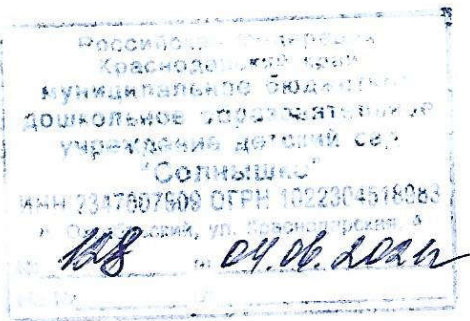 Российская Федерация
Краснодарский край
муниципальное бюджетное
дошкольное образовательное
учреждение детский сад
"Солнышко"
ИНН 2347007909 ОГРН
ул. Красноармейская,
128 04.06.202